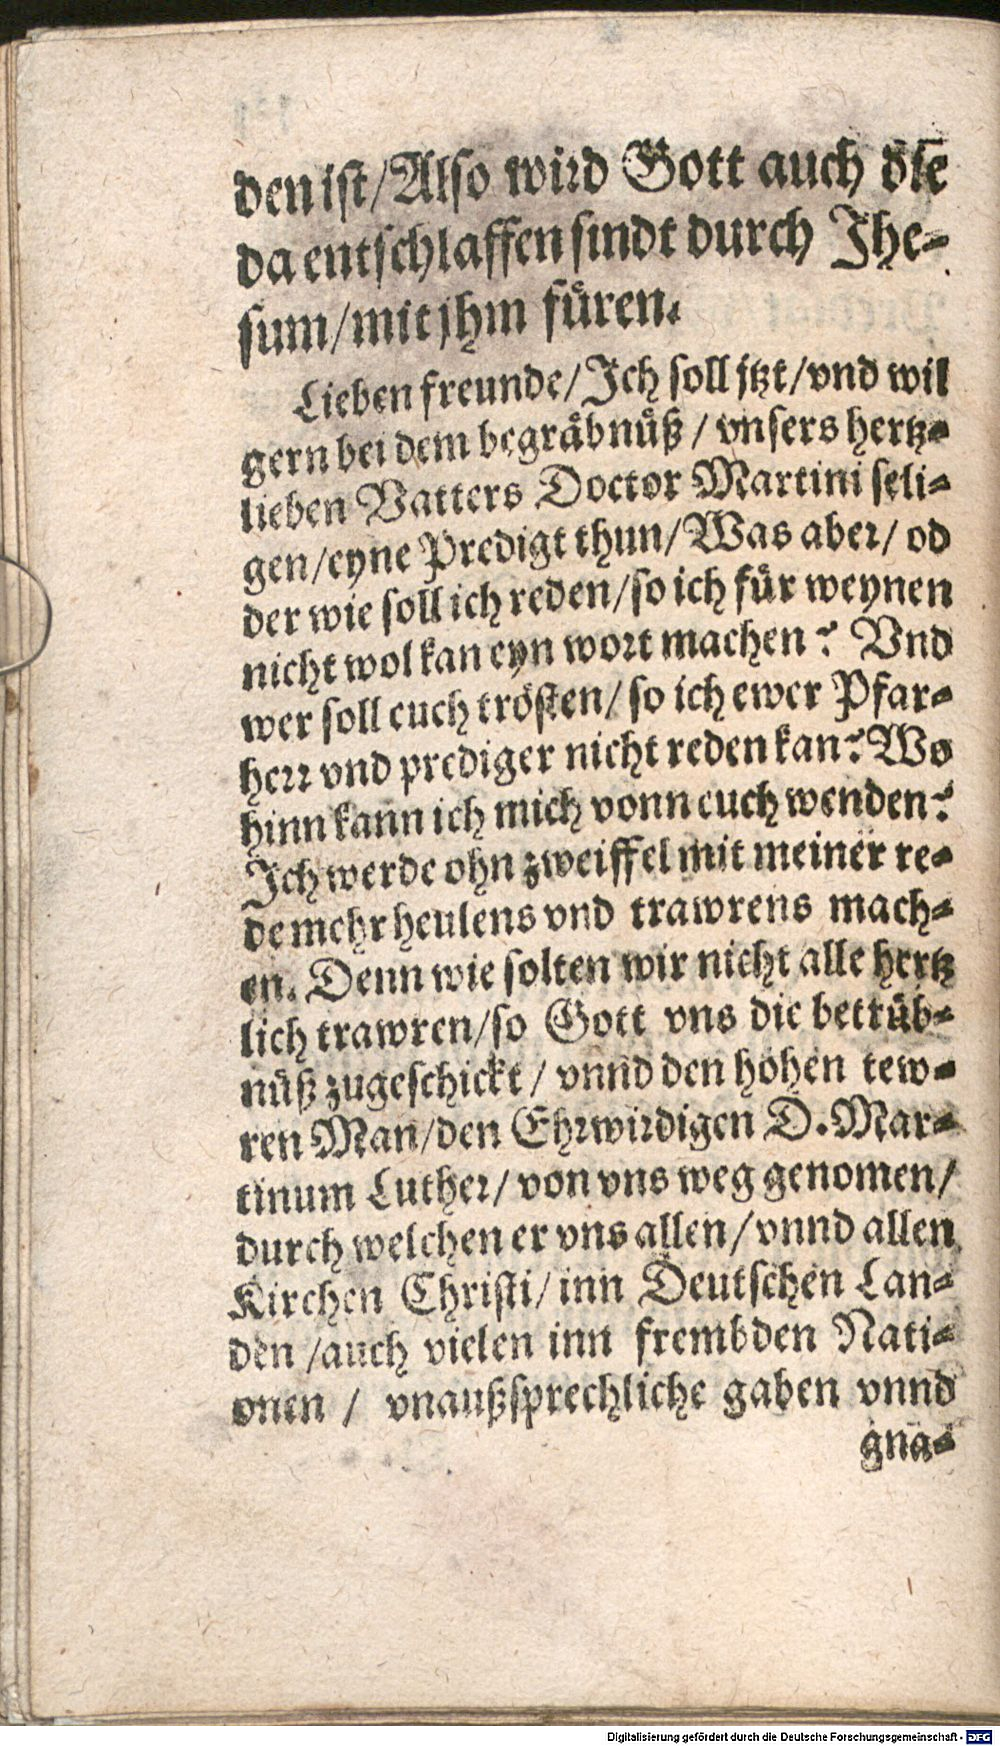 den ist/Also wird Gott auch die
da entschlaffen sindt durch Jhe-
sum/mit jhm füren.
Lieben freunde/Ich soll jtzt/vnd wil
gern bei dem begräbnüß / vnsers hertz-
lieben Vatters Doctor Martini seli-
gen/eyne Predigt thun/Was aber/ od
der wie soll ich reden/so ich für weynen
nicht wol kan eyn wort machen? Vnd
wer soll euch trösten/ so ich ewer Pfar-
herr vnd prediger nicht reden kan? Wo
hinn kann ich mich vonn euch wenden?
Ich werde ohn zweiffel mit meiner re-
de mehr heulens vnd trawrens mach-
en. Denn wie solten wir nicht alle hertz
lich trawren/so Gott vns die betrüb-
nüß zugeschickt / vnnd den hohen tew-
ren Man/den Ehrwirdigen D. Mar-
tinum Luther/ von vns weg genomen/
durch welchen er vns allen/vnnd allen
Kirchen Christi/inn Deutschen Lan-
den /auch vielen inn frembden Nati-
onen / vnaußsprechliche gaben vnnd
gna-
Digitalisierung gefördert durch die Deutsche Forschungsgemeinschaft - DFG